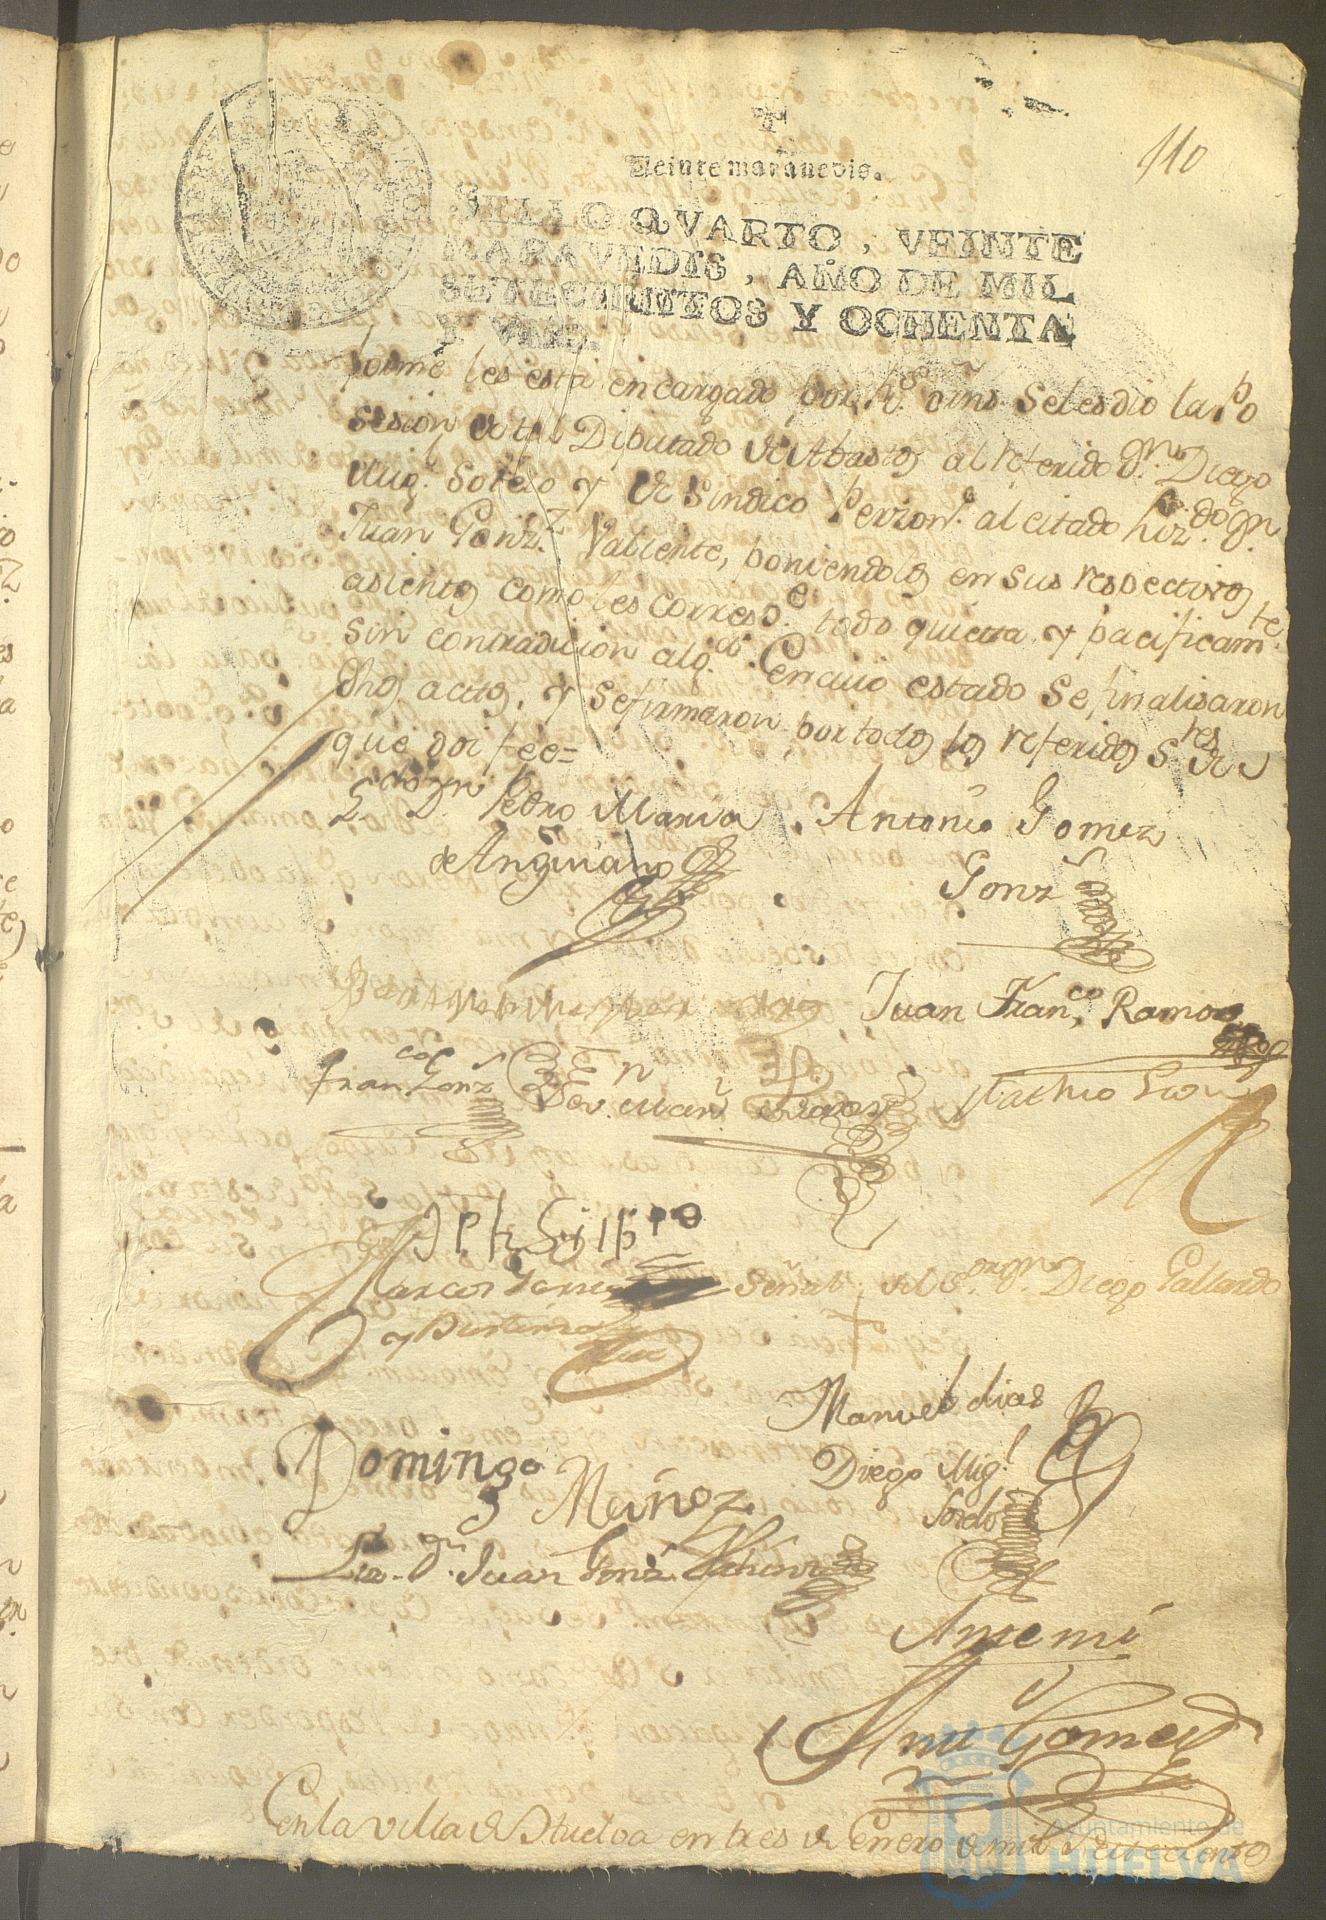 110
Veinte maravedis.
SELLO QVARTO, VEINTE
MARAVEDIS, AÑO DE MIL
SETECIENTOS Y OCHENTA
Y VNO.
forme les está encargado por hōs se les dio la Po
sesion de tal Diputado de Abastos al referido Dn. Diego
Mig.l Sordo y de Sindico Person.o al citado Liz.do Dn.
Juan Gonz.z Valiente, poniendolos en sus respectivos
asientos como les corresp.e todo quieta y pacificam.te
sin contradicion alg.a En cuio estado se finalisaron
dhos actos, y se firmaron por todos los referidos S.res de
que doi fee=
L.do Dn. Pedro Maria
de Anguiano
Antonio Gomez
Gonz
Juan Fran.co Ramos
Fran.co Gonz
Man.l
Marcos
Señal del S.or Dn. Diego Gallardo
Manuel dias
Domingo
Muñoz
Diego Mig.l
Sordo
Liz.do Dn. Juan Gonz. Valiente
Ante mi
Gomez
En la villa de Huelva en tres de Enero de mil Setecientos
Ayuntamiento de
HUELVA